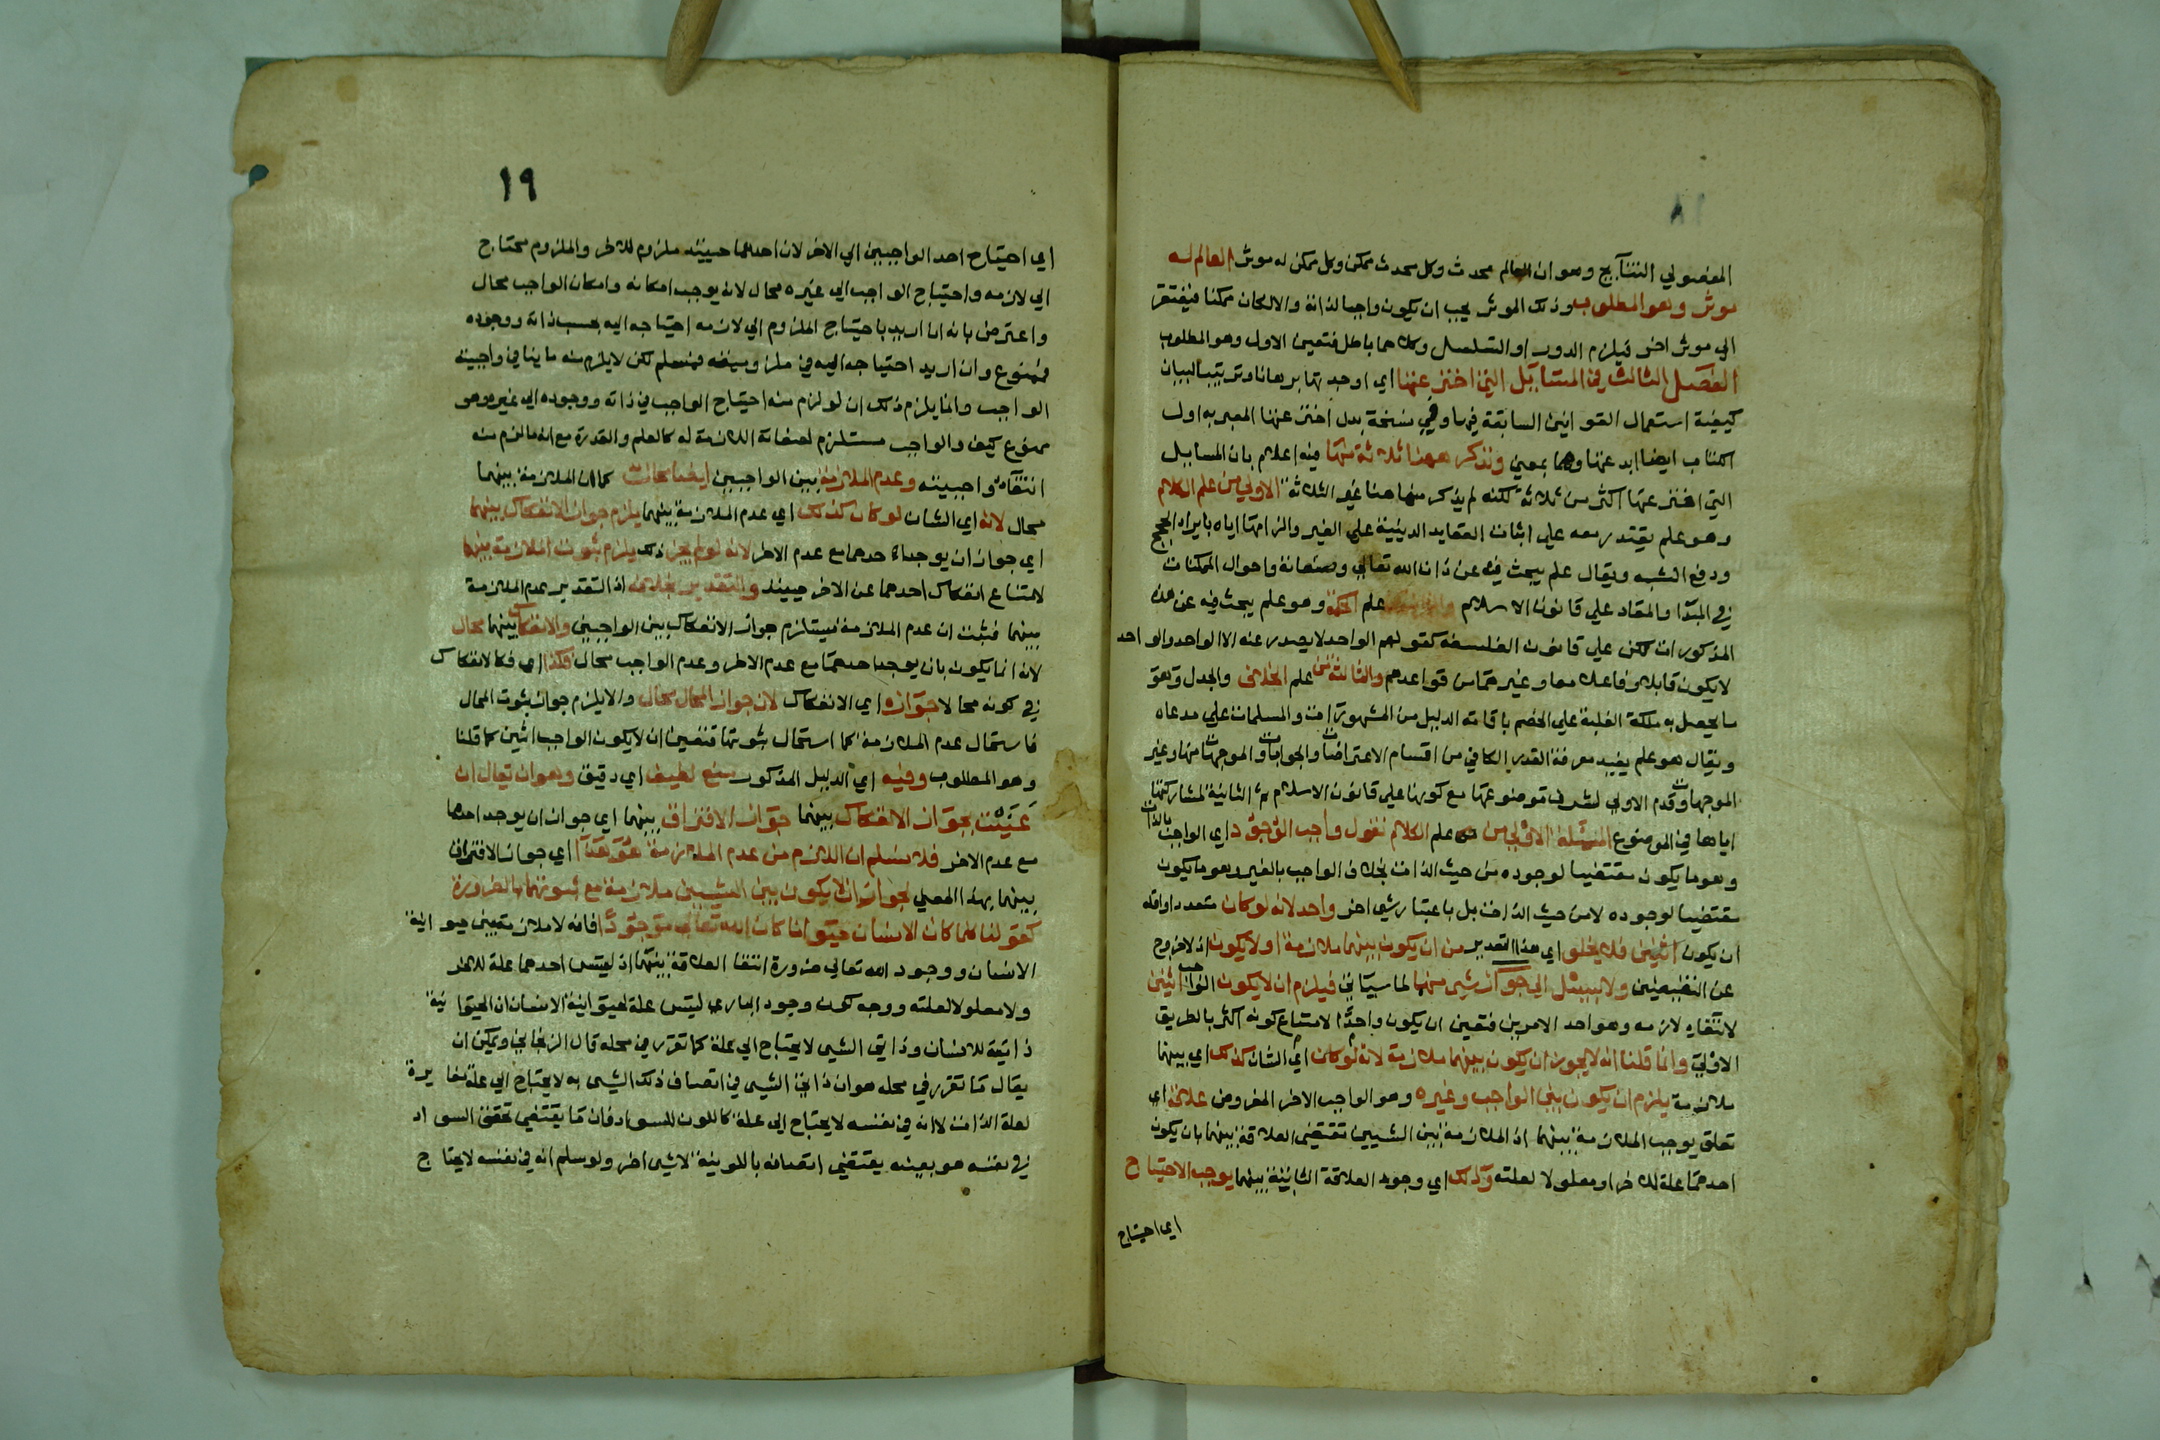 المفصولي النتايج وهو ان العالم محدث وكل محدث ممكن وكل ممكن له موثر العالم له
موثر وهو المطلوب وذلك الموثر يجب ان يكون واجبا لذاته والا لكان ممكنا فيفتقر
الي موثر اخر فيلزم الدور او التسلسل وكلاهما باطل فتعين الاول وهو المطلوب
الفصل الثالث في المسآيل التي اخترعنها اي اوجدتها برهانا وترتيبا لبيان
كيفية استعمال القوانين السابقة فيها وفي نسخة بدل اخترعنها المعبر به اول
الكتاب ايضا ابدعنها وهما بمعني ونذكر ههنا ثلاثة منها فيه اعلام بان المسايل
التي اخترعها اكثر من ثلاثة لكنه لم يذكر منها هنا غير الثلاثة الاولي من علم الكلام
وهو علم يقتدر معه علي اثبات العقايد الدينية علي الغير والزامها اياه بايراد الحجج
ودفع الشبه ويقال علم يبحث فيه عن ذات الله تعالي وصفاته واحوال الممكنات
في المبدا والمعاد علي قانون الاسلام علم الحكمة وهو علم يبحث فيه عن هذه
المذكورات لكن علي قانون الفلسفة كقولهم الواحد لا يصدر عنه الا الواحد والواحد
لا يكون قابلا وفاعلا معا وغيرهما من قواعدهم والثالثة من علم الخلاف والجدل وهو
ما يحصل به ملكة الغلبة علي الخصم باقامة الدليل من المشهورات والمسلمات علي مدعاه
ويقال هو علم يفيد معرفة القدر الكافي من اقسام الاعتراضات والجوابات والموجهات منها وغير
الموجهات وقدم الاولي لشرف موضوعها مع كونها علي قانون الاسلام ثم الثانية لمشاركتها
اياها في الموضوع المسئلة الاولي من علم الكلام نقول واجب الوجود اي الواجب بالذات
وهو ما يكون مقتضيا لوجوده من حيث الذات بخلاف الواجب بالغير وهو ما يكون
مقتضيا لوجوده لا من حيث الذات بل باعتبار شي اخر واحد لانه لو كان متعددا واقله
ان يكون اثنين فلا يخلو اي هذا التقدير من ان يكون بينهما ملازمة او لا يكون اذ لا خروج
عن النقيضين ولا سبيل الي جواز شي منها لما سياتي فيلزم ان لا يكون الواجب اثنين
لانتفاء لازمه وهو احد الامرين فتعين ان يكون واحدا لامتناع كونه اكثر بالطريق
الاولي وانما قلنا انه لا يجوز ان يكون بينهما ملازمة لانه لو كان اي الشان كذلك اي بينهما
ملازمة يلزم ان يكون بين الواجب وغيره وهو الواجب الاخر المفروض علاقة اي
تعلق يوجب الملازمة بينهما اذ الملازمة بين الشيين تقتضي العلاقة بينهما بان يكون
احدهما علة للاخر او معلولا لعلته وذلك اي وجود العلاقة الثابتة بينهما يوجب الاحتياج
اي احتياج
١٩
اي احتياج احد الواجبين الي الاخر لان احدهما حينئذ ملزوم للاخر والملزوم محتاج
الي لازمه واحتياج الواجب الي غيره محال لانه يوجب امكانه وامكان الواجب محال
واعترض بانه ان اريد باحتياج الملزوم الي لازمه احتياجه اليه بحسب ذاته ووجوده
فممنوع وان اريد احتياجه اليه في ملزوميته فمسلم لكن لا يلزم منه ما ينافي واجبية
الواجب وانما يلزم ذلك ان لو لزم منه احتياج الواجب في ذاته ووجوده الي غيره وهو
ممنوع كيف والواجب مستلزم لصفاته اللازمة له كالعلم والقدرة مع انه ما لزم منه
انتفاء واجبيته وعدم الملازمة بين الواجبين ايضا محال كما ان الملازمة بينهما
محال لانه اي الشان لو كان كذلك اي عدم الملازمة بينهما يلزم جواز الانفكاك بينهما
اي جواز ان يوجد احدهما مع عدم الاخر لانه لو لم يجز ذلك يلزم ثبوت الملازمة بينهما
لامتناع انفكاك احدهما عن الاخر حينئذ والتقدير خلافه اذ التقدير عدم الملازمة
بينهما فثبت ان عدم الملازمة يستلزم جواز الانفكاك بين الواجبين والانفكاك بينهما محال
لانه انما يكون بان يوجد احدهما مع عدم الاخر وعدم الواجب محال فكذا اي فكالانفكاك
في كونه محالا جوازه اي الانفكاك لان جواز المحال محال والا يلزم جواز ثبوت المحال
فاستحال عدم الملازمة كما استحال ثبوتها فتعين ان لا يكون الواجب اثنين كما قلنا
وهو المطلوب وفيه اي الدليل المذكور منع لطيف اي دقيق وهو ان تعالى ان
عنيت بجواز الانفكاك بينهما جواز الافتراق بينهما اي جواز ان يوجد احدهما
مع عدم الاخر فلا نسلم ان اللازم من عدم الملازمة هو هذا اي جواز الافتراق
بينهما بهذا المعني لجواز ان لا يكون بين الشيين ملازمة مع ثبوتهما بالضرورة
كقولنا كلما كان الانسان حيوانا كان الله تعالى موجودا فانه لا ملازمة بين حيوانية
الانسان ووجود الله تعالي ضرورة انتفا العلاقة بينهما اذ ليس احدهما علة للاخر
ولا معلولا لعلته ووجه كون وجود الباري ليس علة لحيوانية الانسان ان الحيوانية
ذاتية للانسان وذاتي الشي لا يحتاج الي علة كما تقرر في محله قال الزنجاني ويمكن ان
يقال ما تقرر في محله هو ان ذاتي الشي في اتصاف ذلك الشي به لا يحتاج الي علة مغايرة
لعلة الذات لا انه في نفسه لا يحتاج الي علة كاللون للسواد فان ما يقتضي تحقق السواد
في نفسه هو بعينه يقتضي اتصافه باللونية لا شي اخر ولو سلم انه في نفسه لا يحتاج